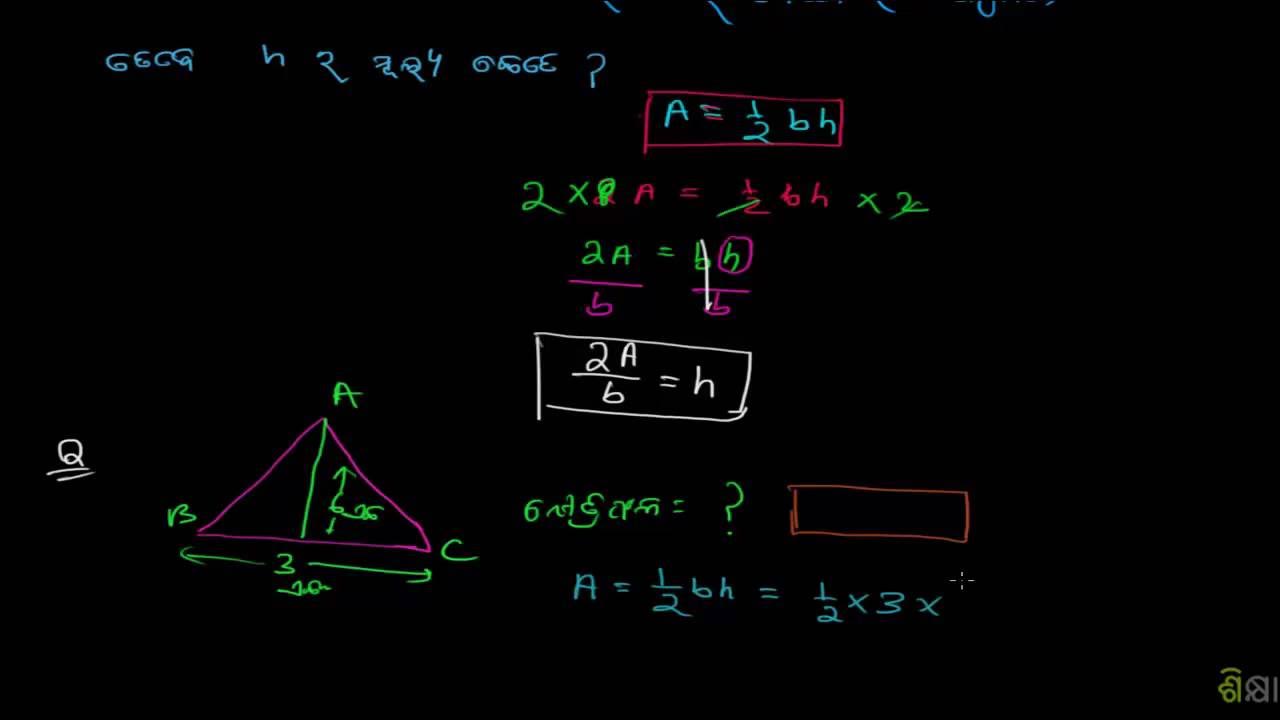 ତେବେ h ର ମୂଲ୍ୟ କେତେ ?
A = 1/2 bh
2 × A = 1/2 bh × 2
2A/b = bh/b
2A/b = h
Q
A
B
C
6
3
କ୍ଷେତ୍ରଫଳ = ?
A = 1/2 bh = 1/2 × 3 ×
ଶିକ୍ଷା